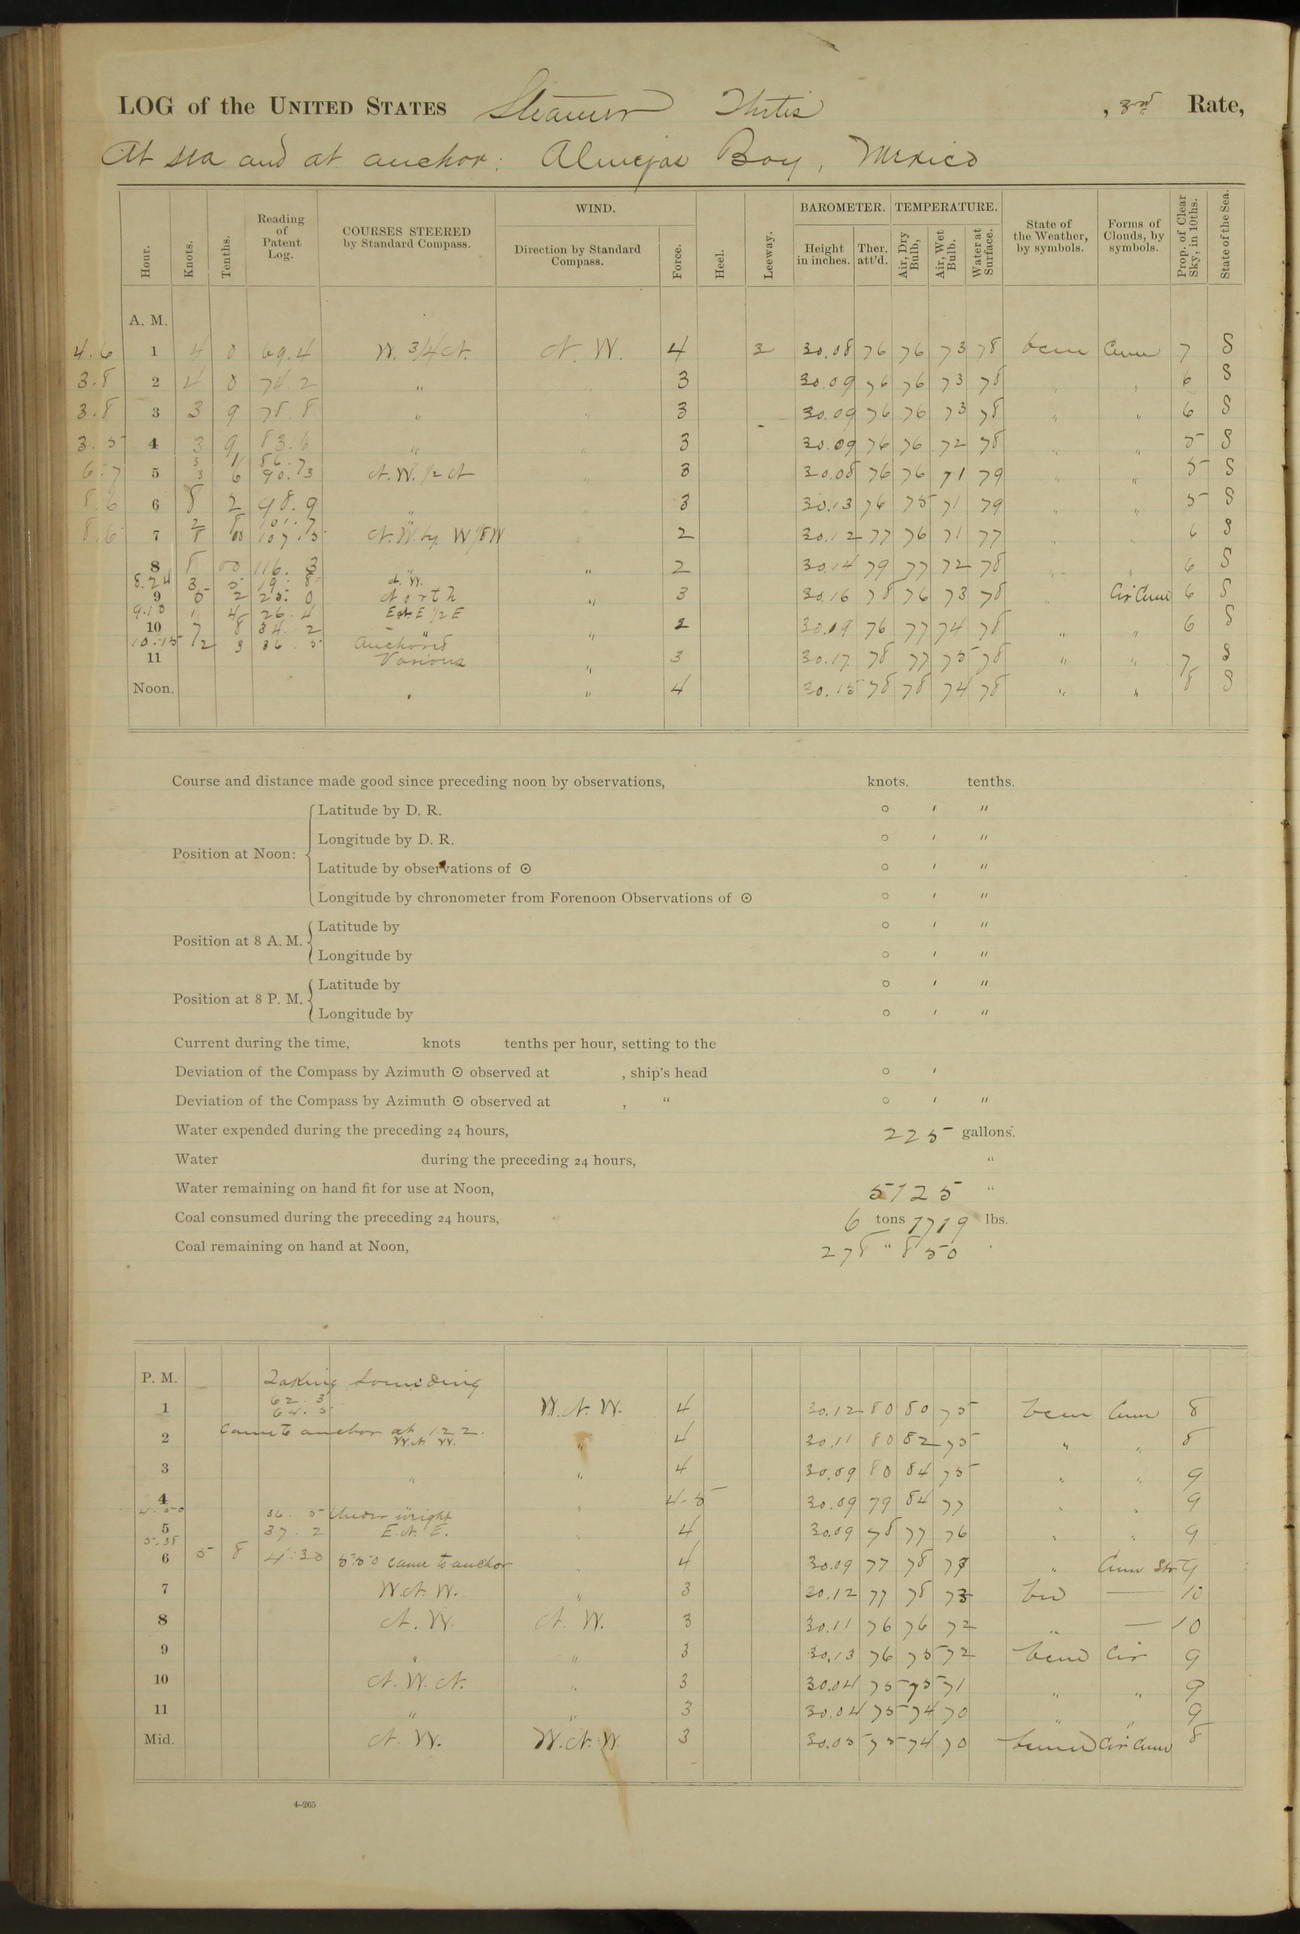 LOG of the UNITED STATES Steamer Thetis , 3rd Rate,
At sea and at anchor: Almejas Bay, Mexico
Hour. Knots. Tenths. Reading of Patent Log. COURSES STEERED by Standard Compass. WIND. Direction by Standard Compass. Force. Heel. Leeway. BAROMETER. Height in inches. Ther. att'd. TEMPERATURE. Air, Dry Bulb, Air, Wet Bulb. Water at Surface. State of the Weather, by symbols. Forms of Clouds, by symbols. Prop. of Clear Sky, in 10ths. State of the Sea.
A. M.
4.6 1 4 0 69.4 W. 3/4 N. N. W. 4 2 30.08 76 76 73 78 bcm Cum 7 S
3.8 2 4 0 74 2 " 3 30.09 76 76 73 78 " " 6 S
3.8 3 3 9 78.8 " " 3 30.09 76 76 73 78 " " 6 S
3.5 4 3 9 83.6 " " 3 30.09 76 76 72 78 5 S
3 1 86.7
6.7 5 3 6 90.3 N.W. 1/2 N " 3 30.08 76 76 71 79 " " 5 S
8.6 6 8 2 98.9 " " 3 30.13 76 75 71 79 " " 5 S
2 8 101.7
8.6 7 8 00 107.5 N.W. by W 1/8 W 2 30.12 77 76 71 77 " " 6 S
8 8 00 116.3 " " 2 30.14 79 77 72 78 " " 6 S
8.24 3 5 19.8 N. W.
9 5 2 25.0 North " 3 30.16 78 76 73 78 " Cir Cum 6 S
9.10 1 4 26.4 E 1/2 E
10 7 8 34.2 " " 2 30.09 76 77 74 78 " " 6 S
10.15 1/2 3 36.5 Anchored
11 Various " 3 30.17 78 77 75 78 " " 7 S
Noon. " " 4 30.15 78 78 74 78 " " 8 S
Course and distance made good since preceding noon by observations, knots. tenths.
Position at Noon:
Latitude by D. R. ° ′ ″
Longitude by D. R. ° ′ ″
Latitude by observations of ⊙ ° ′ ″
Longitude by chronometer from Forenoon Observations of ⊙ ° ′ ″
Position at 8 A. M. Latitude by ° ′ ″
Longitude by ° ′ ″
Position at 8 P. M. Latitude by ° ′ ″
Longitude by ° ′ ″
Current during the time, knots tenths per hour, setting to the
Deviation of the Compass by Azimuth ⊙ observed at , ship's head ° ′
Deviation of the Compass by Azimuth ⊙ observed at , " ° ′ ″
Water expended during the preceding 24 hours, 225 gallons.
Water during the preceding 24 hours, "
Water remaining on hand fit for use at Noon, 5125 "
Coal consumed during the preceding 24 hours, 6 tons 1719 lbs.
Coal remaining on hand at Noon, 278 " 850
P. M. Taking Sounding
62.3
1 64.5 W.N.W. 4 30.12 80 80 75 bcm Cum 8
Came to anchor at 1.22.
2 W.N.W. " 4 30.11 80 82 75 " " 8
3 " " 4 30.09 80 84 75 " " 9
4 " 4-5 30.09 79 84 77 " " 9
4.50 36.5 Under weight
5 37.2 E.N.E. " 4 30.09 78 77 76 " " 9
5.38
6 5 8 4:30 5:50 came to anchor " 4 30.09 77 78 77 " Cum Str 9
7 W.N.W. " 3 30.12 77 78 73 — 10
8 N.W. N.W. 3 30.11 76 76 72 " — 10
9 " " 3 30.13 76 75 72 Cir 9
10 N.W.N. " 3 30.04 75 75 71 " " 9
11 " " 3 30.04 75 74 70 " " 9
Mid. N.W. W.N.W. 3 30.05 75 74 70 Cir Cum 8
4–265